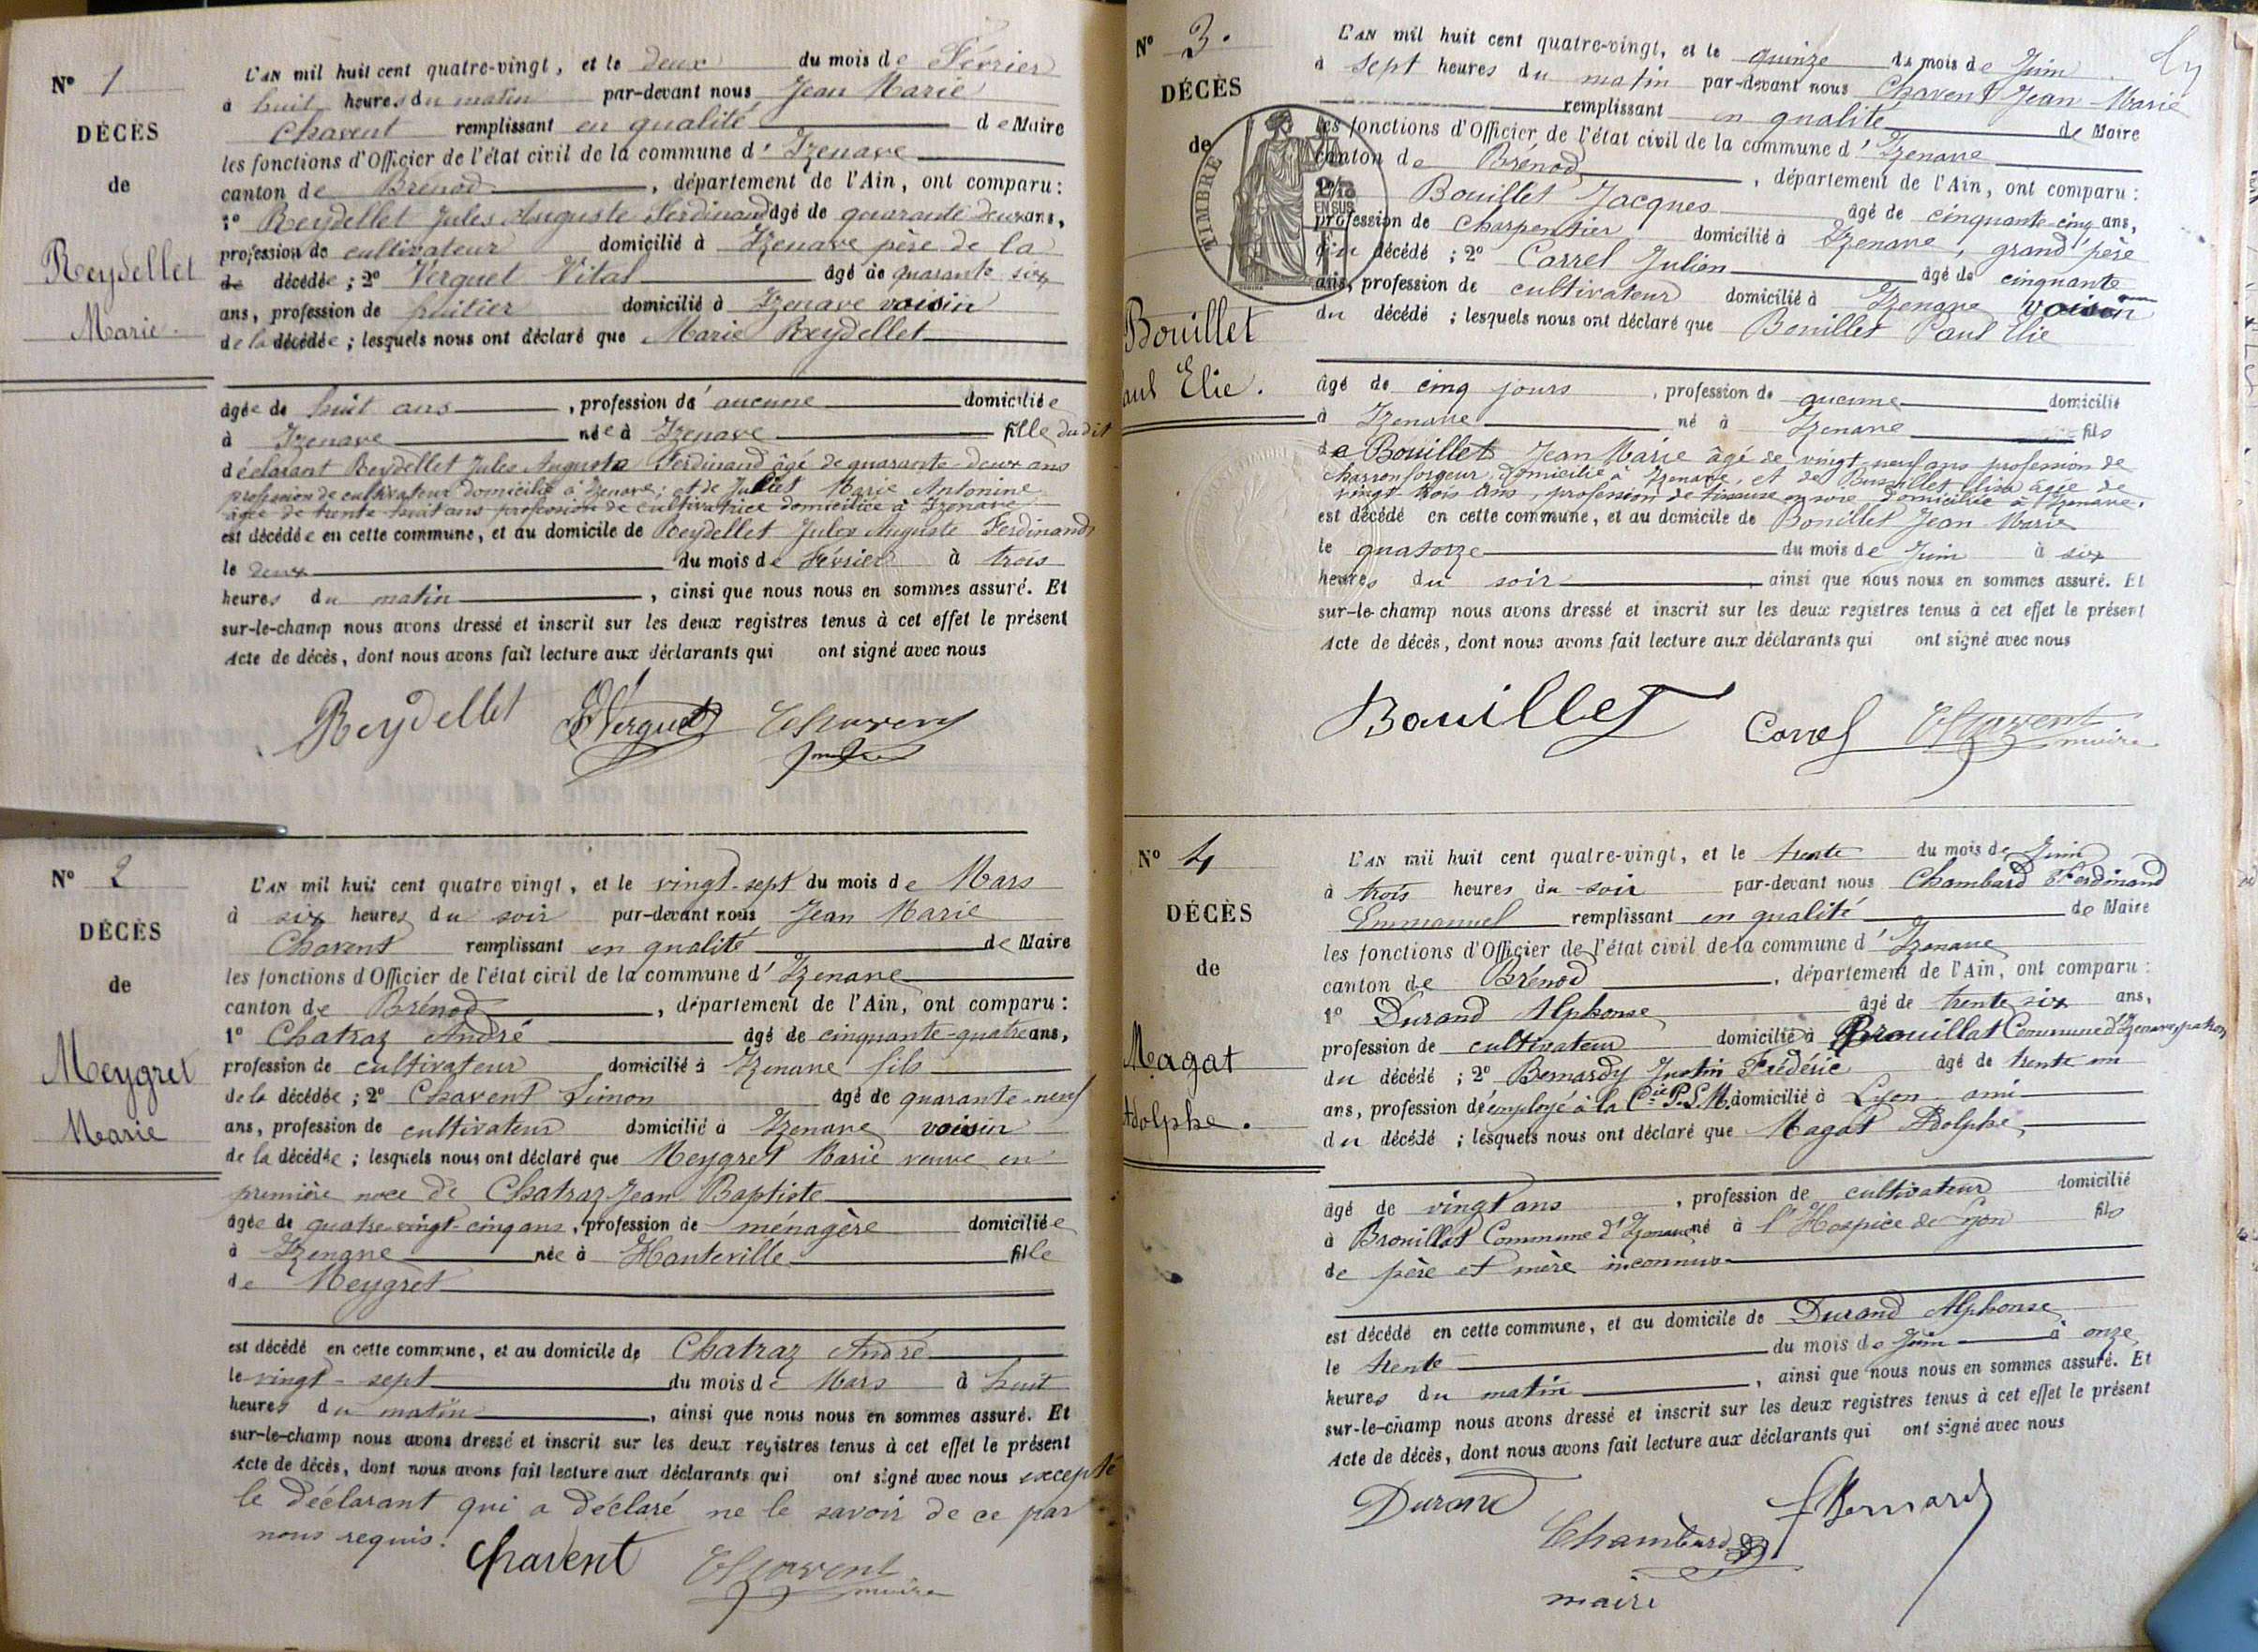 N° 1
DÉCÈS
de
Reydellet
Marie.
L'AN mil huit cent quatre-vingt, et le deux du mois de Février
à huit heures du matin par-devant nous Jean Marie
Chavent remplissant en qualité de Maire
les fonctions d'Officier de l'état civil de la commune d'Izenave
canton de Brénod, département de l'Ain, ont comparu :
1° Reydellet Jules Auguste Ferdinand âgé de quarante deux ans,
profession de cultivateur domicilié à Izenave père de la
de décédée ; 2° Verguet Vital âgé de quarante six
ans, profession de domicilié à Izenave voisin
de la décédée ; lesquels nous ont déclaré que Marie Reydellet
âgée de huit ans, profession d'aucune domiciliée
à Izenave née à Izenave fille du dit
déclarant Reydellet Jules Auguste Ferdinand âgé de quarante-deux ans
profession de cultivateur domicilié à Izenave ; et de Juliet Marie Antonine
âgée de trente huit ans profession de cultivatrice domiciliée à Izenave
est décédée en cette commune, et au domicile de Reydellet Jules Auguste Ferdinand
le deux du mois de Février à trois
heures du matin, ainsi que nous nous en sommes assuré. Et
sur-le-champ nous avons dressé et inscrit sur les deux registres tenus à cet effet le présent
Acte de décès, dont nous avons fait lecture aux déclarants qui ont signé avec nous
Reydellet Verguet Chavent
N° 2
DÉCÈS
de
Meygret
Marie
L'AN mil huit cent quatre vingt, et le vingt-sept du mois de Mars
à six heures du soir par-devant nous Jean Marie
Chavent remplissant en qualité de Maire
les fonctions d'Officier de l'état civil de la commune d'Izenave
canton de Brénod, département de l'Ain, ont comparu :
1° Chatraz André âgé de cinquante-quatre ans,
profession de cultivateur domicilié à Izenave fils
de la décédée ; 2° Chavent Simon âgé de quarante-neuf
ans, profession de cultivateur domicilié à Izenave voisin
de la décédée ; lesquels nous ont déclaré que Meygret Marie veuve en
première noce de Chatraz Jean Baptiste
âgée de quatre-vingt-cinq ans, profession de ménagère domiciliée
à Izenave née à Hauteville fille
de Meygret
est décédé en cette commune, et au domicile de Chatraz André
le vingt-sept du mois de Mars à huit
heures du matin, ainsi que nous nous en sommes assuré. Et
sur-le-champ nous avons dressé et inscrit sur les deux registres tenus à cet effet le présent
Acte de décès, dont nous avons fait lecture aux déclarants qui ont signé avec nous excepté
le déclarant qui a déclaré ne le savoir de ce par
nous requis.
Chavent Chavent
maire
N° 3.
DÉCÈS
de
Bouillet
aul Elie.
TIMBRE
2/10
EN SUS
L'AN mil huit cent quatre-vingt, et le quinze du mois de Juin
à sept heures du matin par-devant nous Chavent Jean-Marie
remplissant en qualité de Maire
les fonctions d'Officier de l'état civil de la commune d'Izenave
canton de Brénod, département de l'Ain, ont comparu :
Bouillet Jacques âgé de cinquante-cinq ans,
profession de charpentier domicilié à Izenave, grand'père
du décédé ; 2° Carrel Julien âgé de cinquante
ans, profession de cultivateur domicilié à Izenave voisin
du décédé ; lesquels nous ont déclaré que Bouillet Paul Elie
âgé de cinq jours, profession de aucune domicilié
à Izenave né à Izenave fils
de Bouillet Jean Marie âgé de vingt-neuf ans profession de
charron forgeur, domicilié à Izenave, et de Lisa âgée de
vingt trois ans, profession de tisseuse en soie domiciliée à Izenave.
est décédé en cette commune, et au domicile de Bouillet Jean Marie
le quatorze du mois de Juin à six
heures du soir, ainsi que nous nous en sommes assuré. Et
sur-le-champ nous avons dressé et inscrit sur les deux registres tenus à cet effet le présent
Acte de décès, dont nous avons fait lecture aux déclarants qui ont signé avec nous
Bouillet Carrel Chavent
maire
N° 4
DÉCÈS
de
Magat
Adolphe.
L'AN mil huit cent quatre-vingt, et le trente du mois de Juin
à trois heures du soir par-devant nous Chambard Ferdinand
Emmanuel remplissant en qualité de Maire
les fonctions d'Officier de l'état civil de la commune d'Izenave
canton de Brénod, département de l'Ain, ont comparu :
1° Durand Alphonse âgé de trente six ans,
profession de cultivateur domicilié à Brouillat Commune d'Izenave, patron
du décédé ; 2° Bernardy Justin Frédéric âgé de trente un
ans, profession d'employé à la Cie P.L.M. domicilié à Lyon ami
du décédé ; lesquels nous ont déclaré que Magat Adolphe,
âgé de vingt ans, profession de cultivateur domicilié
à Brouillat Commune d'Izenave né à l'Hospice de Lyon fils
de père et mère inconnus
est décédé en cette commune, et au domicile de Durand Alphonse
le trente du mois de Juin à onze
heures du matin, ainsi que nous nous en sommes assuré. Et
sur-le-champ nous avons dressé et inscrit sur les deux registres tenus à cet effet le présent
Acte de décès, dont nous avons fait lecture aux déclarants qui ont signé avec nous
Durand Bernardy
Chambard
maire